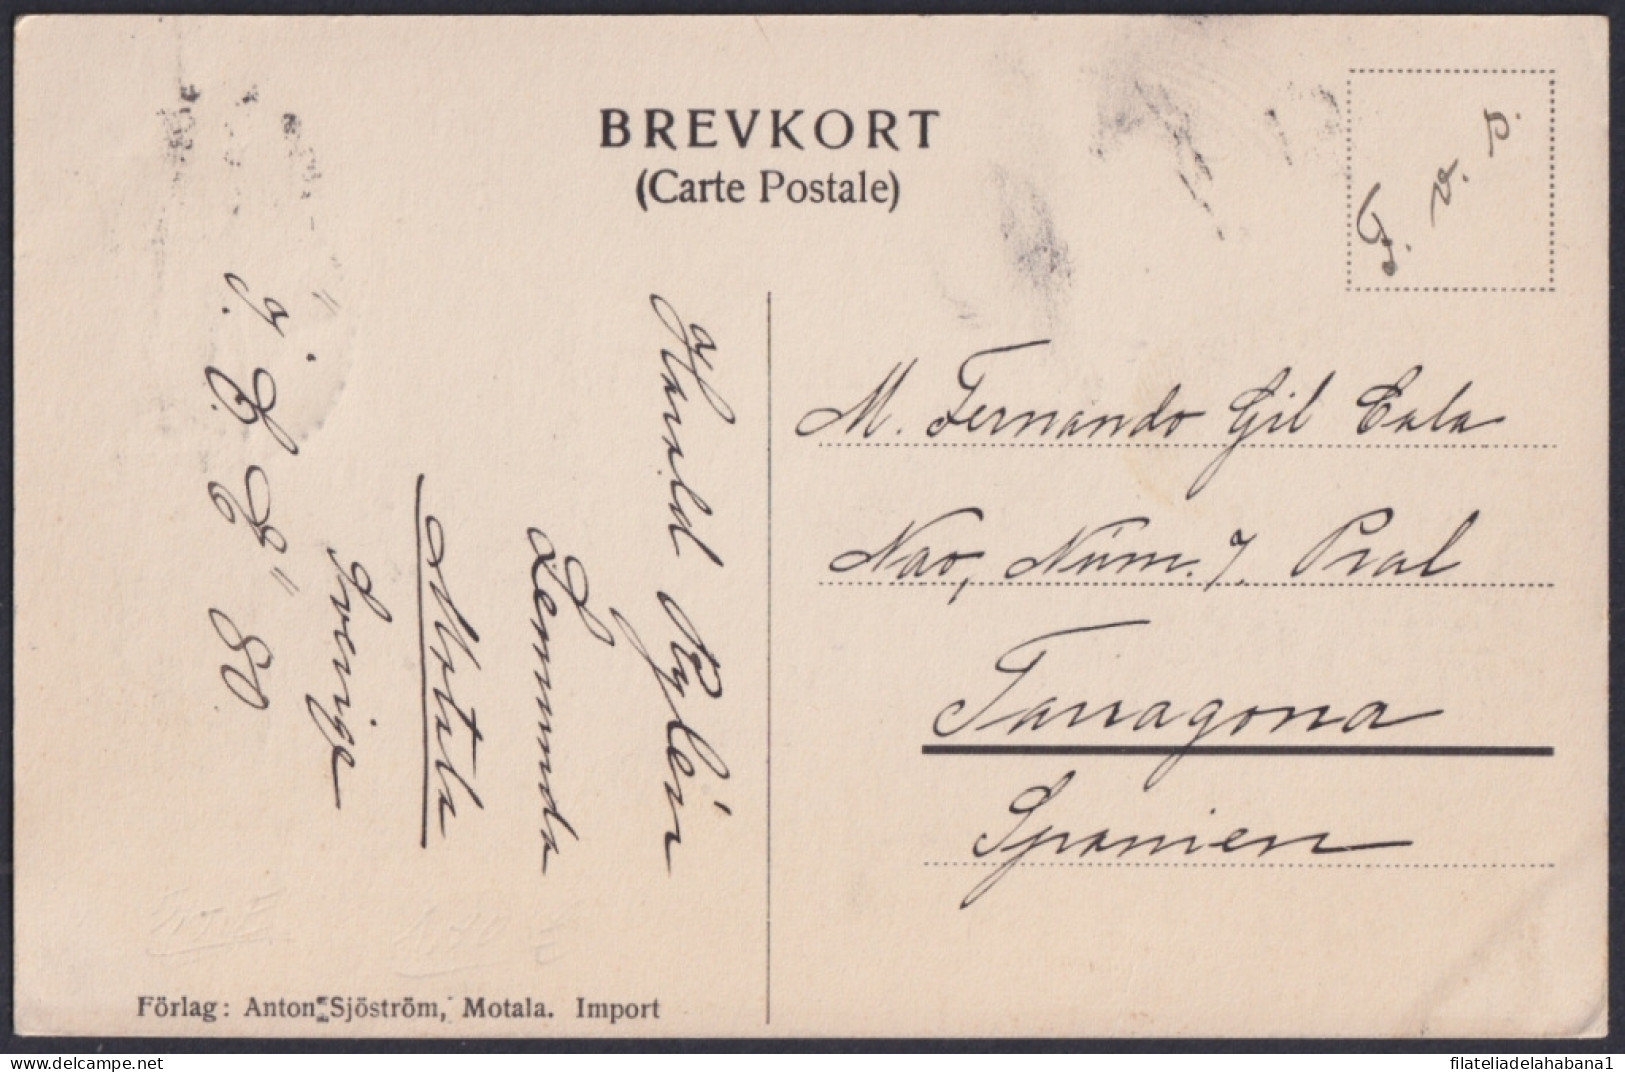 BREVKORT
(Carte Postale)
v. p.
Harald Rylén
Lemunda
Motala
Sverige
80
M. Fernando Gil Cala
Nao, Núm. 7. Pral
Tarragona
Spanien
Förlag: Anton Sjöström, Motala. Import
delcampe.net
filateliadelahabana1